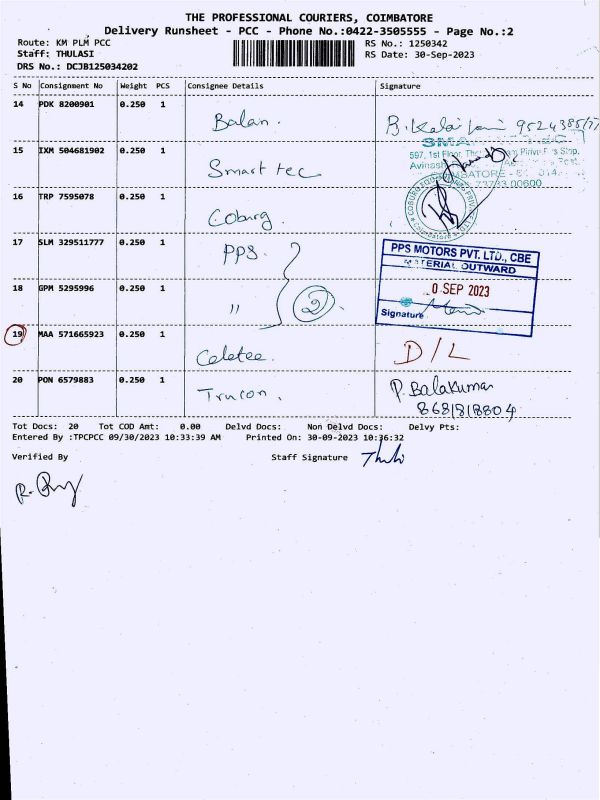 THE PROFESSIONAL COURIERS, COIMBATORE
Delivery Runsheet - PCC - Phone No.:0422-3505555 - Page No.:2
Route: KM PLM PCC
RS No.: 1250342
Staff: THULASI
RS Date: 30-Sep-2023
DRS No.: DCJB125034202
S No Consignment No Weight PCS Consignee Details Signature
14 PDK 8200901 0.250 1 Balan.
15 IXM 504681902 0.250 1 Smart tec
597, 1st Floor
16 TRP 7595078 0.250 1 Coburg.
17 SLM 329511777 0.250 1 PPS.
PPS MOTORS PVT. LTD., CBE
MATERIAL OUTWARD
18 GPM 5295996 0.250 1 " 2
0 SEP 2023
Signature
19 MAA 571665923 0.250 1 Celetee. D/L
20 PON 6579883 0.250 1 Trucon. P. Balakumar
8681818804
Tot Docs: 20 Tot COD Amt: 0.00 Delvd Docs: Non Delvd Docs: Delvy Pts:
Entered By :TPCPCC 09/30/2023 10:33:39 AM Printed On: 30-09-2023 10:36:32
Verified By Staff Signature